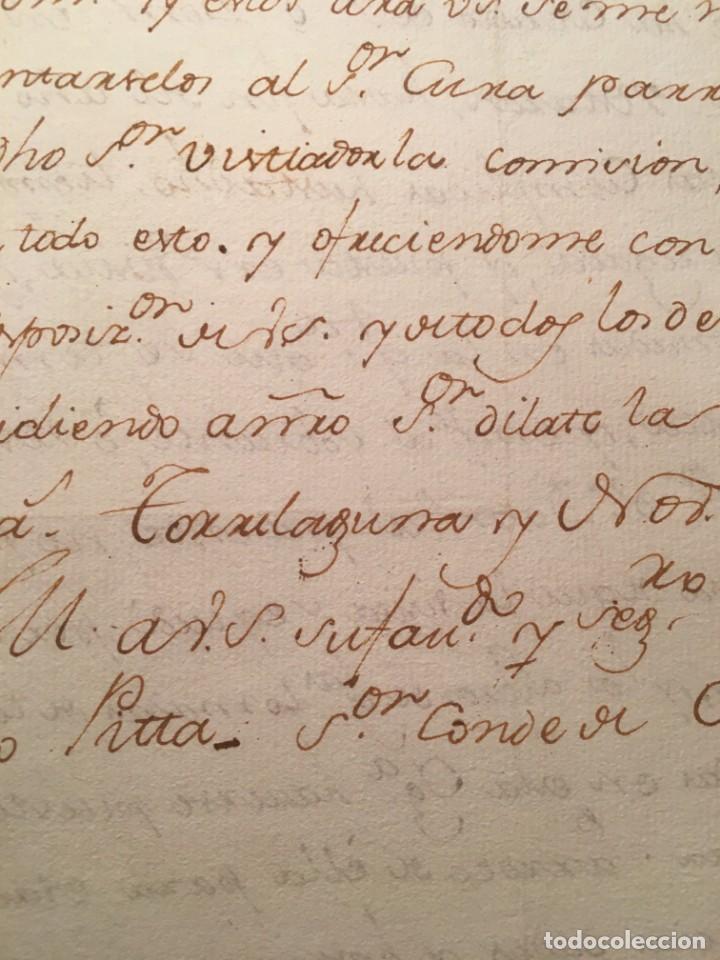 y estos
ntarselos al S.or Cura parr
dho S.or visitador la comision,
todo esto. y ofreciendome con
sposiz.on de V.S. y de todos los de
idiendo a nro S.or dilate la
a.s Torrelaguna y Nov.
M. a V.S. su fau.do y seg.ro
o Pitta_ S.or Conde de C
todocoleccion.net